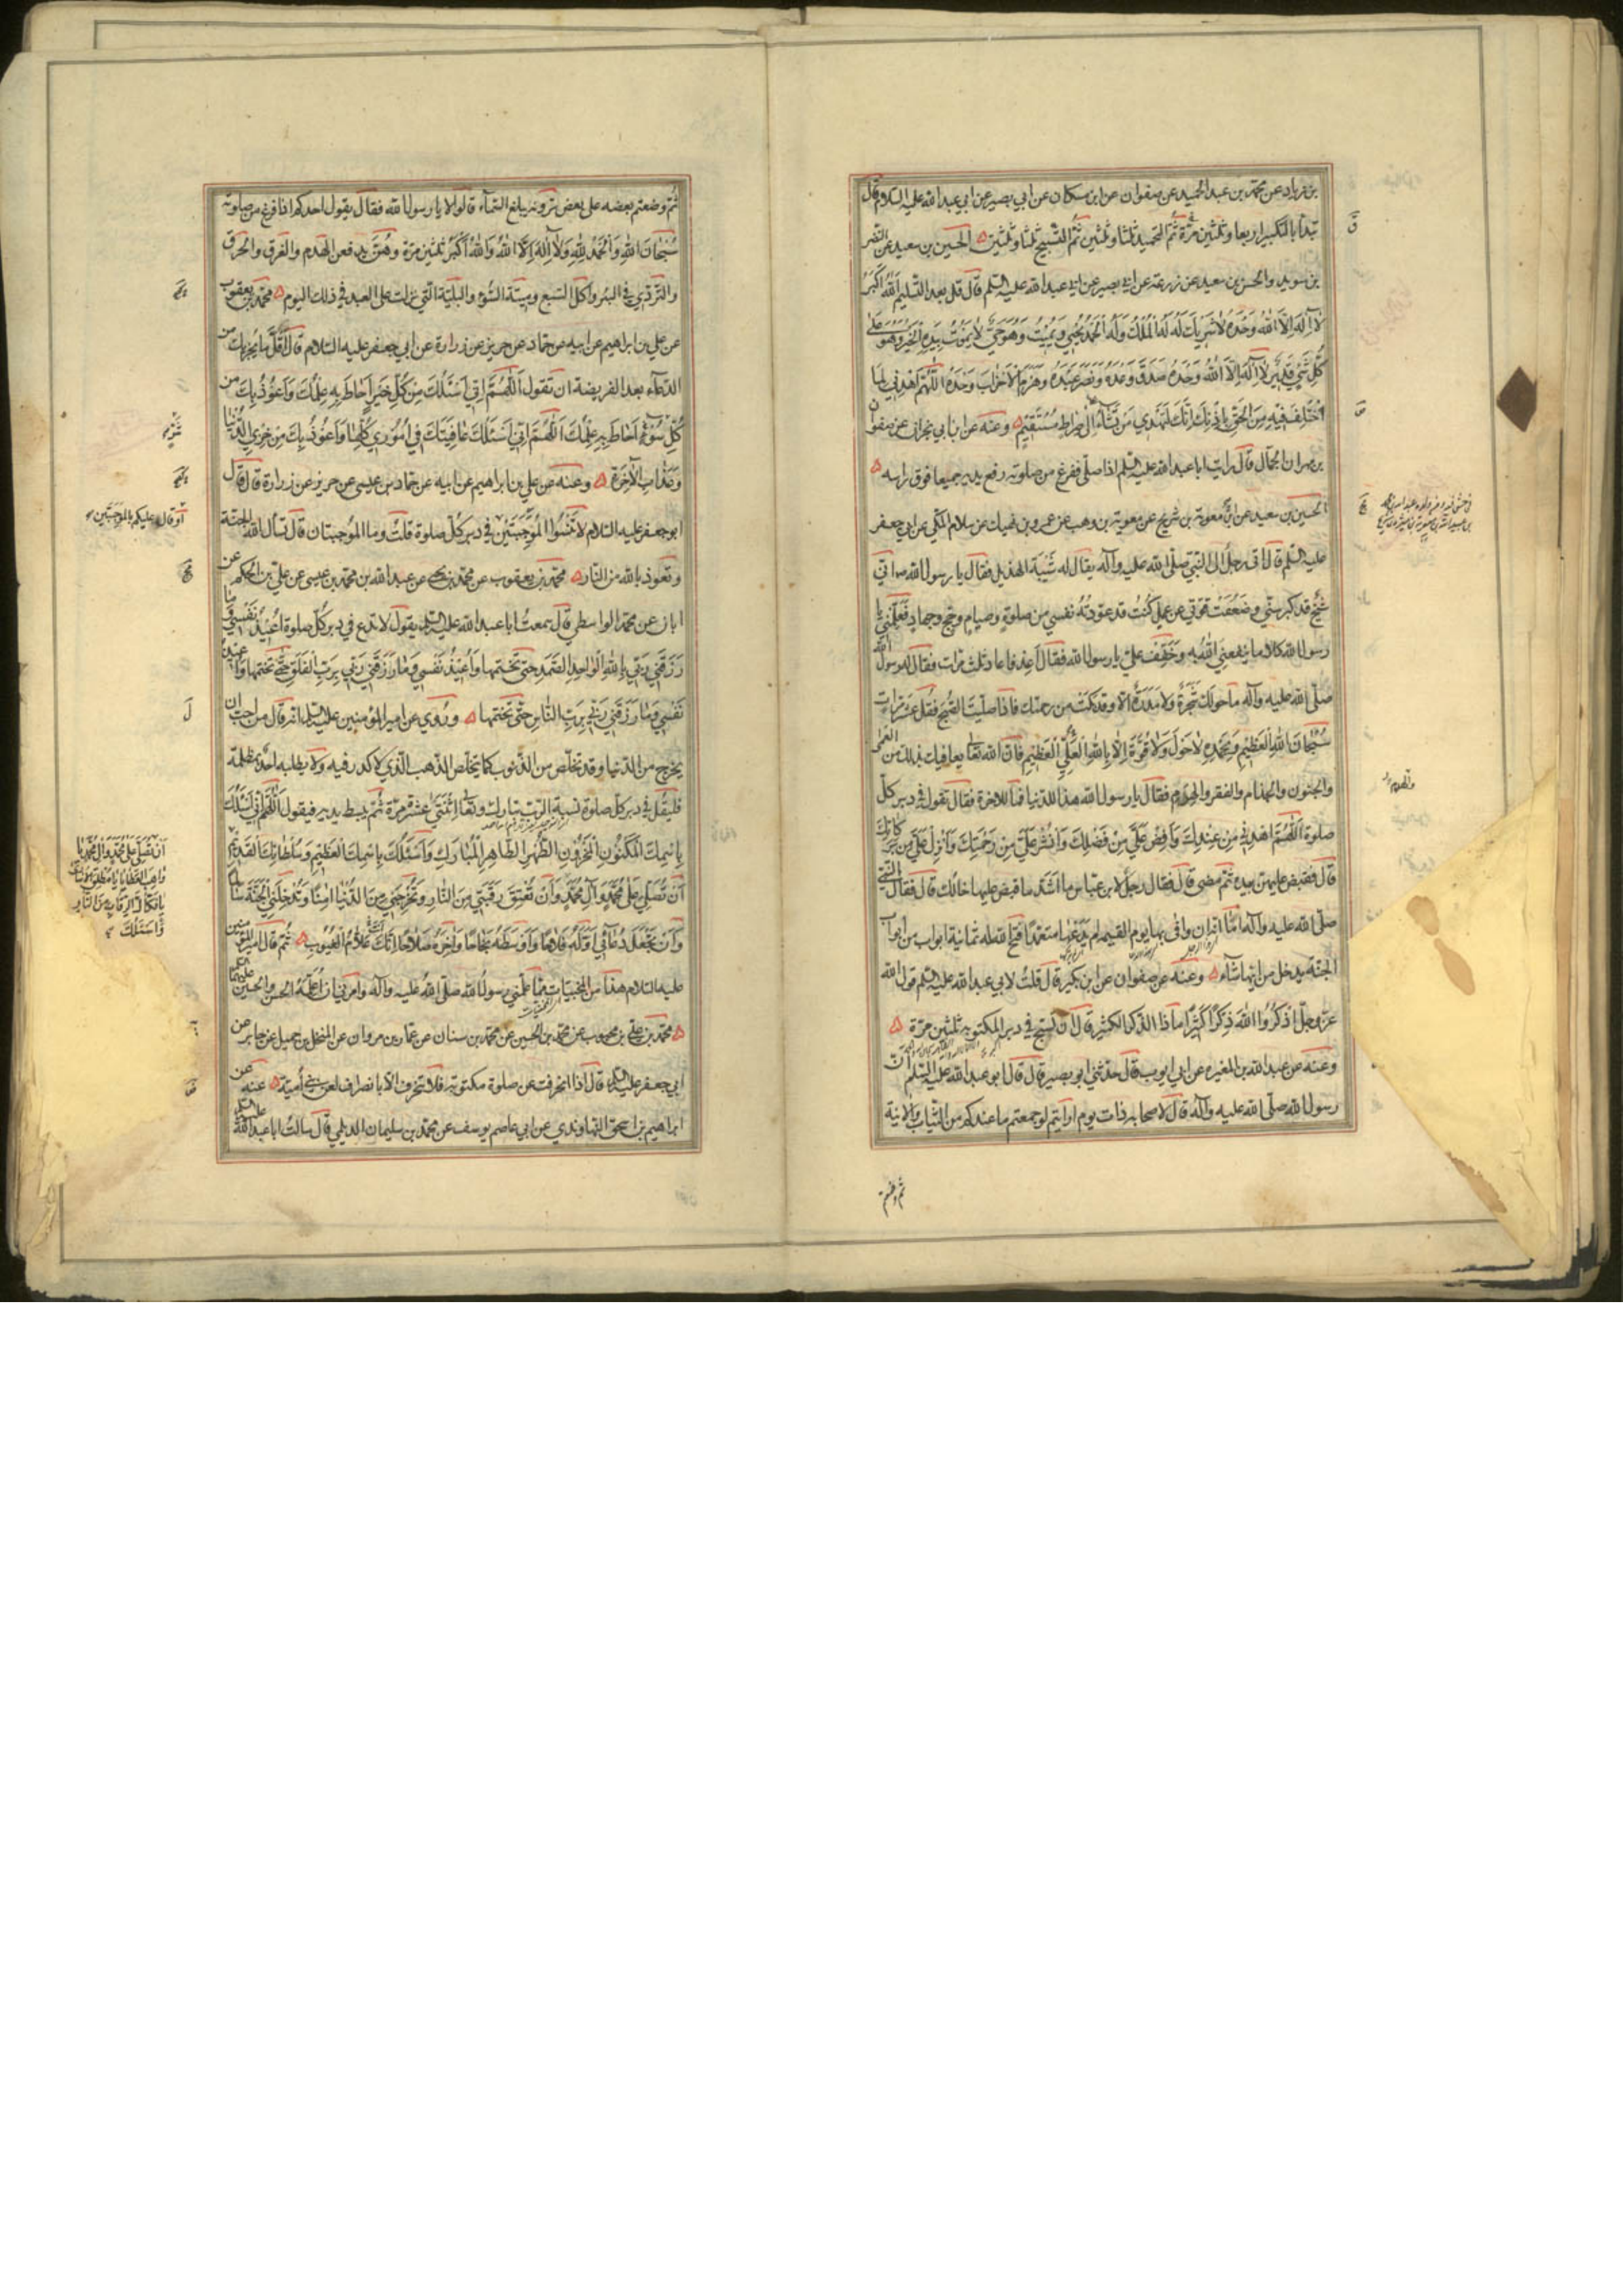 بن زياد عن محمد بن عبد الحميد عن صفوان عن ابن مسكان عن ابي بصير عن ابي عبد الله عليه السلام قال
تبدأ بالتكبير اربعا وثلثين مرّة ثُمّ التحميد ثلثا وثلثين ثُمّ التّسبيح ثلثا وثلثين الحسين بن سعيد عن النضر
بن سويد والحسن بن سعيد عن زرعة عن ابي بصير عن ابي عبد الله عليه السّلم قال قل بعد التّسليم اَللهُ اَكْبَرُ
لا اِلهَ اِلاَّ اللهُ وَحْدَهُ لا شَرِيكَ لَهُ لَهُ الْمُلْكُ وَلَهُ الْحَمْدُ يُحْيِي وَيُمِيْتُ وَهُوَ حَيٌّ لا يَمُوْتُ بِيَدِهِ الْخَيْرُ وَهُوَ عَلى
كُلِّ شَيْءٍ قَدِيْرٌ لا اِلهَ اِلاَّ اللهُ وَحْدَهُ صَدَقَ وَعْدَهُ وَنَصَرَ عَبْدَهُ وَهَزَمَ الاَحْزَابَ وَحْدَهُ اَللّهُمَّ اهْدِنِي لِمَا
اخْتُلِفَ فِيْهِ مِنَ الْحَقِّ بِاِذْنِكَ اِنَّكَ تَهْدِي مَنْ تَشَاءُ اِلى صِرَاطٍ مُسْتَقِيْمٍ وعنه عن ابن ابي نجران عن صفوان
بن مهران الجمّال قال رايت ابا عبد الله عليه السّلم اذا صلّى ففرغ من صلوته رفع يديه جميعا فوق راسه
الحسين بن سعيد عن معوية بن شريح عن معوية بن وهب عن عمرو بن نهيك عن سلام المكّي عن ابي جعفر
عليه السّلم قال اتى رجل الى النّبيّ صلّى الله عليه وآله يقال له شَيْبَة الهذيل فقال يا رسول الله انّي
شيخ قد كبر سنّي وضَعُفَتْ قوّتي عن عمل كُنتُ قد عودتهُ نفسي من صلوةٍ وصيامٍ وحجٍ وجهادٍ فَعَلِّمْني يا
رسول الله كلاما ينفعني اللهُ به وخَفِّف عليّ يا رسول الله فقال اَعِد فاعاد ثلث مرّات فقال له رسول الله
صلّى الله عليه وآله ما حولك شجرةٌ ولا مَدَرَةٌ الا وقد بكت من رحمتك فاذا صلّيتَ الصّبحَ فقُل عشر مرّات
سُبْحَانَ اللهِ الْعَظِيْمِ وَبِحَمْدِهِ لا حَوْلَ وَلا قُوَّةَ اِلاَّ بِاللهِ الْعَلِيِّ الْعَظِيْمِ فانّ الله تعالى يعافيك بذلك من العمى
والجنون والجذام والفقر والهَدَم فقال يا رسول الله هذا للدّنيا فما للاخرة فقال تقول في دبر كلّ
صلوة اَللّهُمَّ اهْدِنِي مِنْ عِنْدِكَ وَاَفِضْ عَلَيَّ مِنْ فَضْلِكَ وَانْشُرْ عَلَيَّ مِنْ رَحْمَتِكَ وَاَنْزِلْ عَلَيَّ مِنْ بَرَكَاتِكَ
قال فقبض عليهنّ بيده ثُمّ مضى قال فقال رجل لابن عبّاس ما اَشَدّ ما قبض عليها خالُك قال فقال النّبيّ
صلّى الله عليه وآله امّا انّه ان وافى بها يوم القيمة لم يَدَعْها متعمّدًا فتح الله له ثمانية ابواب من ابواب
الجنّة يدخل من ايّها شآء وعنه عن صفوان عن ابن بكير قال قلتُ لابي عبد الله عليه السّلم قول الله
عزّ وجلّ اذْكُرُوا اللهَ ذِكْرًا كَثِيْرًا ماذا الذّكر الكثير قال ان تسبّح في دبر المكتوبة ثلثين مرّة
وعنه عن عبد الله بن المغيره عن ابي ايوب قال حدّثني ابو بصير قال قال ابو عبد الله عليه السّلم انّ
رسول الله صلّى الله عليه وآله قال لاصحابه ذات يوم ارايتم لو جمعتم ما عندكم من الثّياب والانية
ثم وضعتم
ثُمّ وضعتم بعضه على بعض ترونه يبلغ السّماء قالوا لا يا رسول الله فقال يقول احدكم اذا فرغ من صلوته
سُبْحَانَ اللهِ وَالْحَمْدُ للهِ وَلا اِلهَ اِلاَّ اللهُ وَاللهُ اَكْبَرُ ثلثين مرّة وهُنّ يدفعن الهدم والغرق والحرق
والتّردّي في البئر واكل السّبع وميتة السّوء والبليّة الّتي نزلت على العبد في ذلك اليوم محمّد بن يعقوب
عن علي بن ابراهيم عن ابيه عن حمّاد عن حريز عن زرارة عن ابي جعفر عليه السّلام قال اَقَلّ ما يُجزيك من
الدّعآء بعد الفريضة ان تقول اَللّهُمَّ اِنِّي اَسْئَلُكَ مِنْ كُلِّ خَيْرٍ اَحَاطَ بِهِ عِلْمُكَ وَاَعُوْذُ بِكَ مِنْ
كُلِّ سُوْءٍ اَحَاطَ بِهِ عِلْمُكَ اَللّهُمَّ اِنِّي اَسْئَلُكَ عَافِيَتَكَ فِي اُمُوْرِي كُلِّهَا وَاَعُوْذُ بِكَ مِنْ خِزْيِ الدُّنْيَا
وَعَذَابِ الاخِرَةِ وعنه عن علي بن ابراهيم عن ابيه عن حمّاد بن عيسى عن حريز عن زرارة قال قال
ابو جعفر عليه السّلام لا تَنْسَوُا المُوْجِبَتَيْن في دبر كلّ صلوة قلتُ وما المُوجبتان قال تسأل اللهَ الجنّة
وتعوذ بالله من النّار محمّد بن يعقوب عن محمّد بن يحيى عن عبد الله بن محمّد بن عيسى عن عليّ بن الحكم عن
ابان عن محمّد الواسطي قال سمعتُ ابا عبد الله عليه السّلم يقول لا تدع في دبر كُلّ صلوة اُعِيْذُ نَفْسِيْ وَمَا
رَزَقَنِي رَبِّي بِاللهِ الْوَاحِدِ الصَّمَدِ حتّى تختمها وَاُعِيْذُ نَفْسِي وَمَا رَزَقَنِي رَبِّي بِرَبِّ الْفَلَقِ حتّى تختمها وَاُعِيْذُ
نَفْسِي وَمَا رَزَقَنِي رَبِّي بِرَبِّ النَّاسِ حتّى تختمها ورُوي عن امير المؤمنين عليه السّلم انّه قال من احبّ ان
يخرج من الدّنيا وقد تخلّص من الذّنوب كما يتخلّص الذّهب الّذي لا كدر فيه ولا يطلبه احدٌ بمظلمة
فليقُل في دبر كلّ صلوة نسبة الرّبّ تبارك وتعالى اثنتَيْ عشرة مرّة ثُمّ يبسط يديه فيقول اَللّهُمَّ اِنِّي اَسْئَلُكَ
بِاسْمِكَ الْمَكْنُوْنِ الْمَخْزُوْنِ الطُّهْرِ الطَّاهِرِ الْمُبَارَكِ وَاَسْئَلُكَ بِاسْمِكَ الْعَظِيْمِ وَسُلْطَانِكَ الْقَدِيْمِ
اَنْ تُصَلِّيَ عَلى مُحَمَّدٍ وَآلِ مُحَمَّدٍ وَاَنْ تُعْتِقَ رَقَبَتِي مِنَ النَّارِ وَتُخْرِجَنِي مِنَ الدُّنْيَا امِنًا وَتُدْخِلَنِي الْجَنَّةَ سَالِمًا
وَاَنْ تَجْعَلَ دُعَآئِي اَوَّلَهُ فَلاحًا وَاَوْسَطَهُ نَجَاحًا وَاخِرَهُ صَلاحًا اِنَّكَ اَنْتَ عَلاَّمُ الْغُيُوْبِ ثُمّ قال امير المؤمنين
عليه السّلام هذا من المخبيّات ممّا علّمني رسولُ الله صلّى اللهُ عليه وآله وامرني ان اُعَلِّمَهُ الحسن والحسين عليهما السلم
محمّد بن علي بن محبوب عن محمّد بن الحسين عن محمّد بن سنان عن عمّار بن مروان عن المنخل بن جميل عن جابر عن
ابي جعفر عليه السّلم قال اذا انحرفت عن صلوة مكتوبة فلا تنحرف الا بانصراف لعن بني اُميّة عنه عن
ابراهيم بن اسحق النّهاوندي عن ابي عاصم يوسف عن محمّد بن سليمان الديلمي قال سالتُ ابا عبد الله عليه السلم
او قال عليكم بالموجبتين
اَنْ تُصَلِّيَ عَلى مُحَمَّدٍ وَآلِ مُحَمَّدٍ يَا
وَاهِبَ الْعَطَايَا يَا مُطْلِقَ الاُسَارى
يَا فَكَّاكَ الرِّقَابِ مِنَ النَّارِ
وَاَسْئَلُكَ